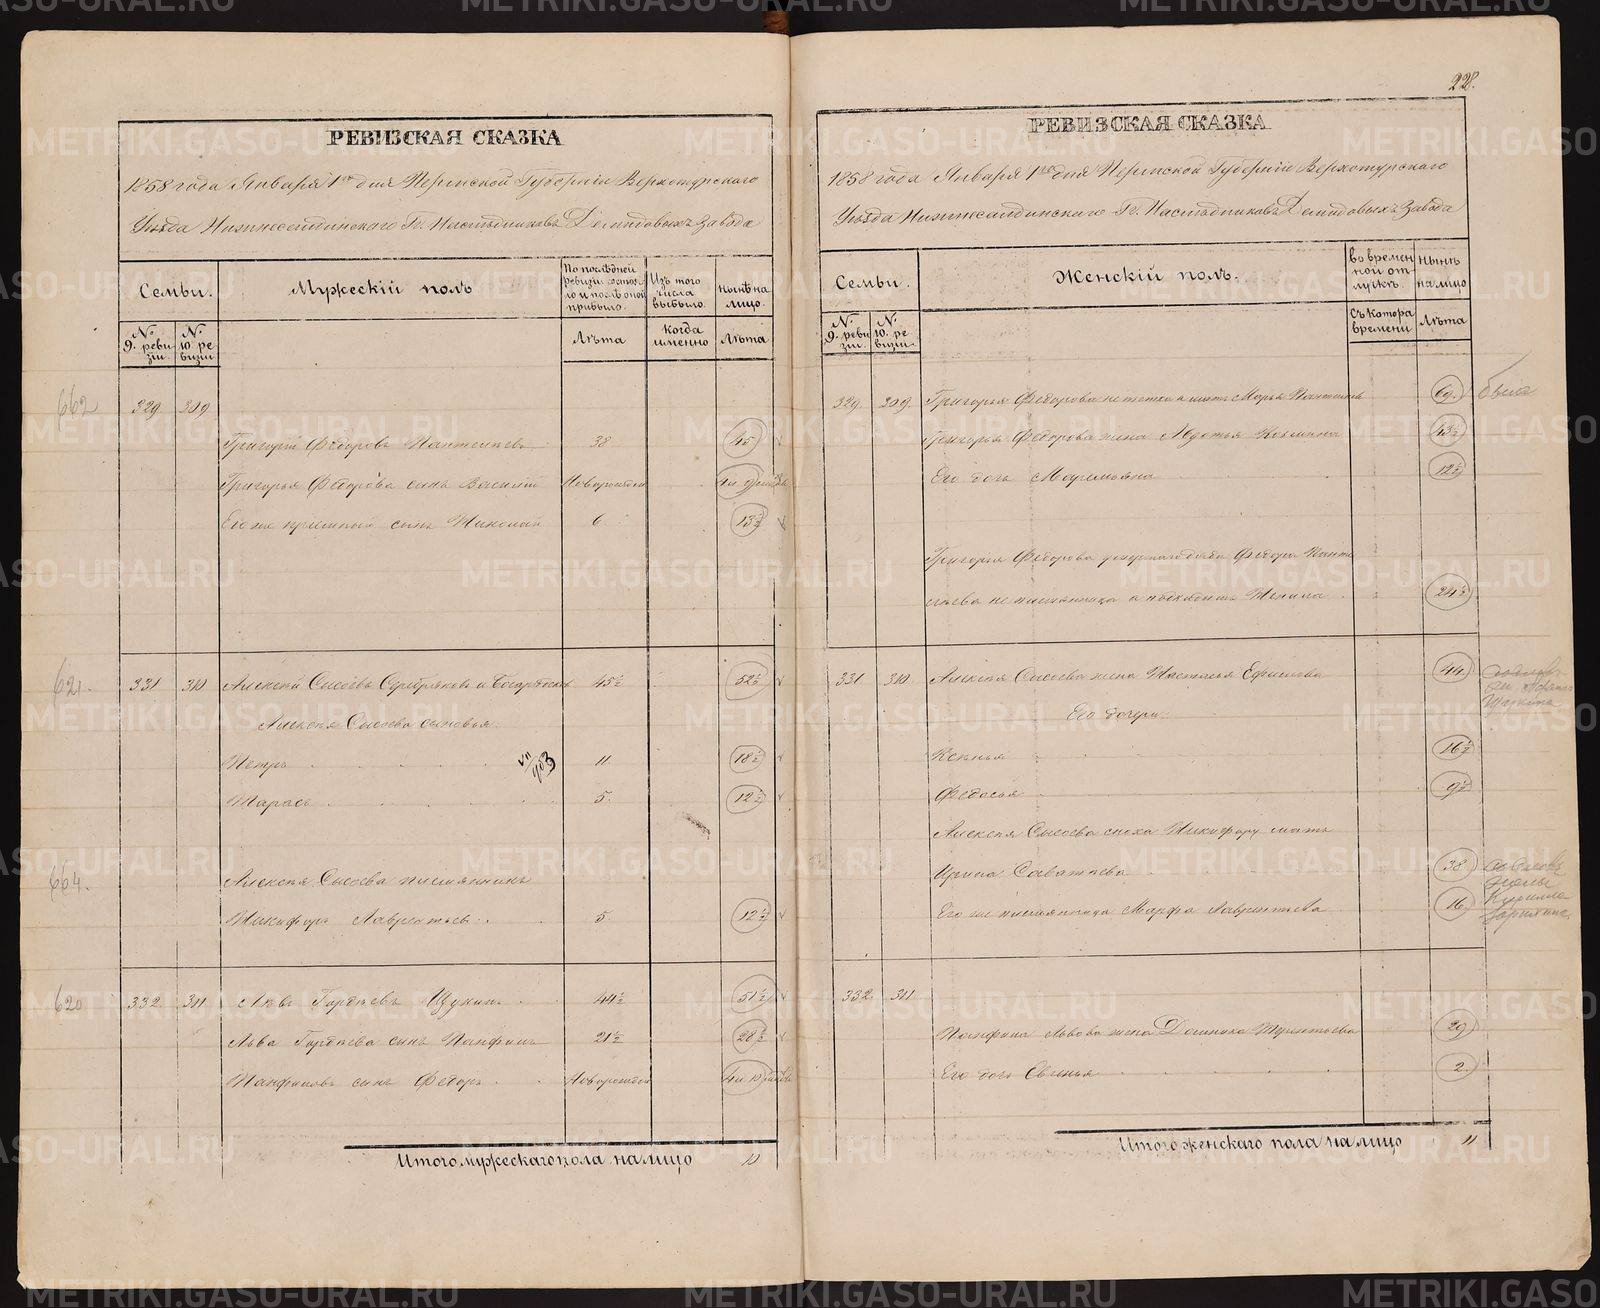 228.
РЕВИЗСКАЯ СКАЗКА
1858 года Января 1го дня Пермской Губерніи Верхотурскаго
Уѣзда Нижнесалдинскаго Гг. Наслѣдниковъ Демидовыхъ Завода
Семьи.
Мужескій полъ
По послѣдней ревизіи состояло и послѣ оной прибыло.
Изъ того числа выбыло.
Нынѣ на лицо.
№ 9. ревизіи.
№ 10. ревизіи
Лѣта
Когда именно
Лѣта
662 329. 309.
Григорій Федоровъ Пантелѣевъ 38 45
Григорья Федорова сынъ Василій Новорожден 4
Его же пріемный сынъ Николай 6 13½
621. 331 310 Алексѣй Сысоевъ Серебряковъ 45½ 52½
Алексѣя Сысоева сыновья
Петръ 11 18½
Тарасъ 5. 12½
664.
Алексѣя Сысоева племянникъ
Никифоръ Лаврентьевъ 5. 12½
620 332 311 Левъ Гордѣевъ Щукинъ 44½ 51½
Льва Гордѣева сынъ Панфилъ 21½ 28½
Панфиловъ сынъ Федоръ Новорожден
Итого мужескаго пола на лицо 10
РЕВИЗСКАЯ СКАЗКА
1858 года Января 1го дня Пермской Губерніи Верхотурскаго
Уѣзда Нижнесалдинскаго Гг. Наслѣдниковъ Демидовыхъ Завода
Семьи.
Женскій полъ.
Во временной отлучкѣ.
Нынѣ на лицо
№ 9. ревизіи.
№ 10. ревизіи
Съ котора времени
Лѣта
329. 309. Григорья Федорова не тетка а мать Марья 69.
Григорья Федорова жена Авдотья Козмина 43½
Его дочь Маремьяна 12½
Григорья Федорова Федора Панте
лѣева не племянница а 24½
331 310. Алексѣя Сысоева жена Настасья Ефимова 44.
Его дочери
Ксенья 16½
Федосья 9½
Алексѣя Сысоева сноха Никифору мать
Ирина Савватѣева 38.
Его же племянница Марфа Лаврентьева 16.
332. 311.
Панфила Львова жена Домника Терентьева 29
Его дочь Евгенья 2.
Итого женскаго пола на лицо 11
METRIKI.GASO-URAL.RU